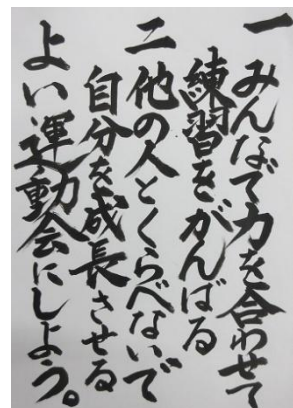 一みんなで力を合わせて
練習をがんばる
二他の人とくらべないで
自分を成長させる
よい運動会にしよう。